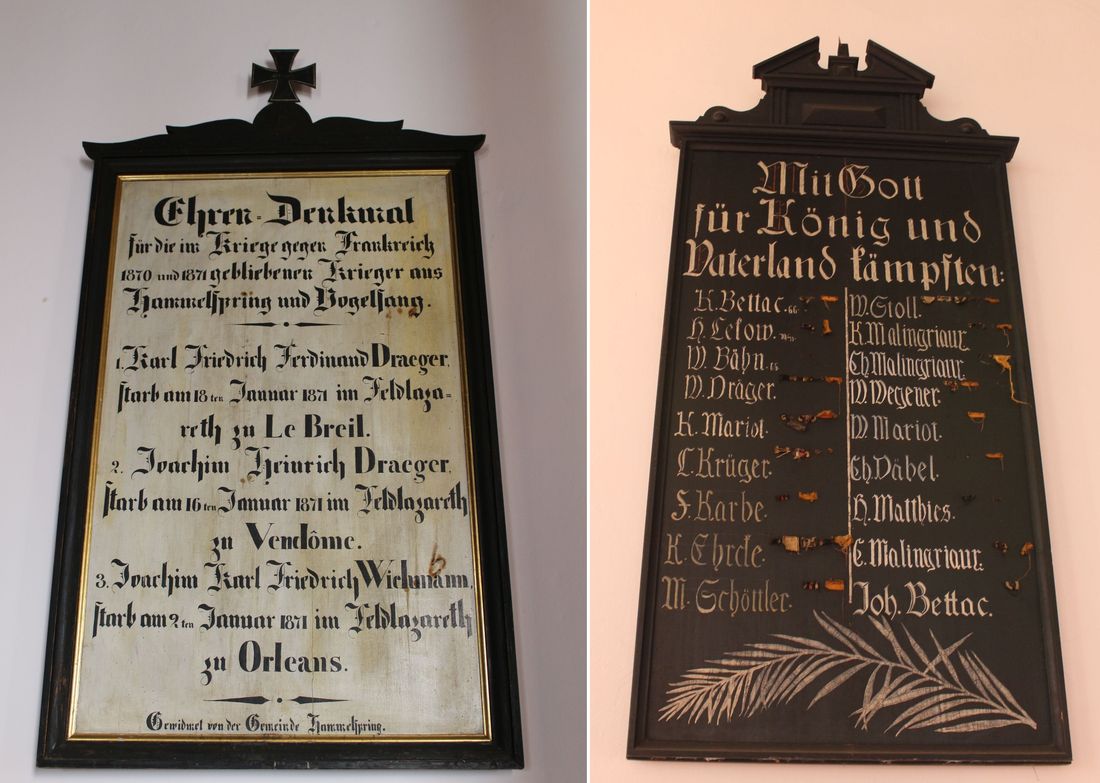 Ehren-Denkmal
für die im Kriege gegen Frankreich
1870 und 1871 gebliebenen Krieger aus
Hammelspring und Vogelsang.
1. Karl Friedrich Ferdinand Draeger,
starb am 18ten Januar 1871 im Feldlaza-
reth zu Le Breil.
2. Joachim Heinrich Draeger,
starb am 16ten Januar 1871 im Feldlazareth
zu Vendôme.
3. Joachim Karl Friedrich Wichmann,
starb am 2ten Januar 1871 im Feldlazareth
zu Orleans.
Gewidmet von der Gemeinde Hammelspring.
Mit Gott
für König und
Vaterland kämpften:
K. Bettac. 66
H. Lekow.
W. Bähn.
W. Dräger.
K. Mariot.
C. Krüger.
F. Karbe.
K. Ehrcke.
M. Schöttler.
W. Stoll.
K. Malingriaux.
Ch. Malingriaux.
W. Wegener.
W. Mariot.
Ch. Däbel.
H. Matthies.
C. Malingriaux.
Joh. Bettac.